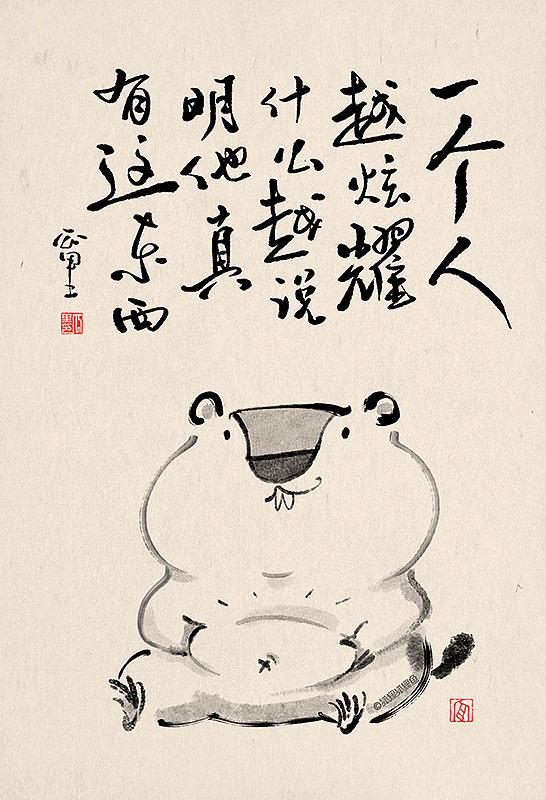 一个人
越炫耀
什么越说
明他真
有这东西